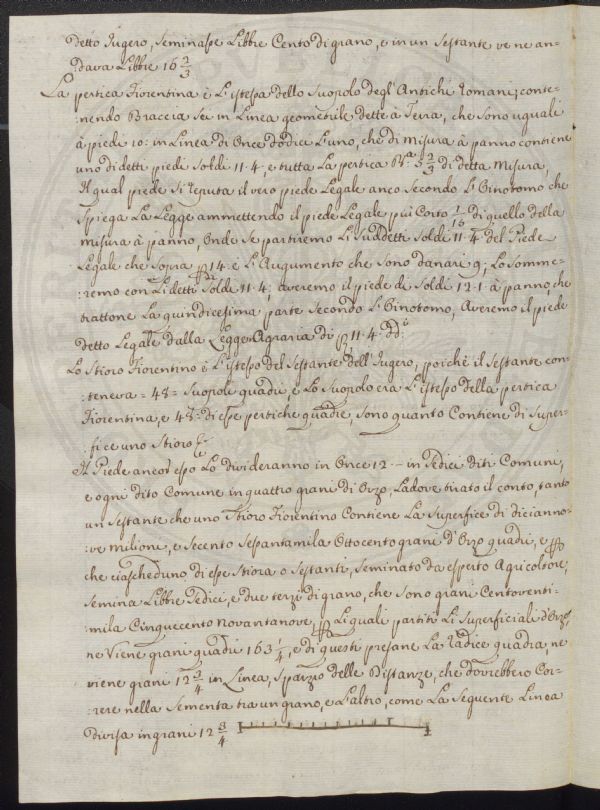 detto Iugero, seminasse Libbre Cento di grano, e in un Sestante ve ne an=
:dava Libbre 16 2/3
La pertica Fiorentina è L'istessa dello Suopolo degl'Antichi Romani, conte=
:nendo Braccia Sei in Linea geometrile dette à Terra, che sono uguali
à piedi 10: in Linea di Once dodici L'uno, che di misura à panno contiene
uno di detti piedi Soldi 11.4, e tutta La pertica Bra. 5 2/3 di detta misura,
Il qual piede si reputa il vero piede Legale anco Secondo L'Ginotomo che
Spiega La Legge ammettendo il piede Legale più Corto 1/15 di quello della
misura à panno, Onde se partiremo Li suddetti Soldi 11.4 del Piede
Legale che sopra p 14. e L'Augumento che sono danari 9; Lo Somme=
:remo con Li detti Soldi 11.4; averemo il piede di Soldi 12.1 à panno, che
trattone La quindicesima parte Secondo L'Ginotomo, Averemo il piede
detto Legale dalla Legge Agraria di p 11.4 dd.i
Lo Stioro Fiorentino è L'istesso del Sestante dell'Iugero, poichè il Sestante con=
:teneva = 48 = Suopole quadre, e Lo Suopolo era L'istesso della pertica
Fiorentina, e 48: di esse pertiche quadre, sono quanto Contiene di Super=
:fice uno Stioro
Il Piede ancor esso Lo divideranno in Once 12 = in Sedici Diti Comuni,
e ogni dito Comune in quattro grani di Orzo, Ladove tirato il conto, tanto
un Sestante che uno Stioro Fiorentino Contiene La Superfice di dicianno=
:ve milioni, e Secento Sessantamila Ottocento grani d'Orzo quadri, e
che ciascheduno di esse Stiora o Sestanti, Seminato da esperto Agricoltore,
Semina Libbre Sedici, e due terzi di grano, che sono grani Centoventi=
:mila Cinquecento novantanove, p Li quali partiti Li Superficiali d'Orzo,
ne Viene grani quadri 163 1/4, e di questi presane La radice quadra, ne
viene grani 12 3/4 in Linea, Spazzo delle Distanze, che dovrebbero Cor=
:rere nella Sementa tra un grano, e L'altro, come La Seguente Linea
Divisa in grani 12 3/4